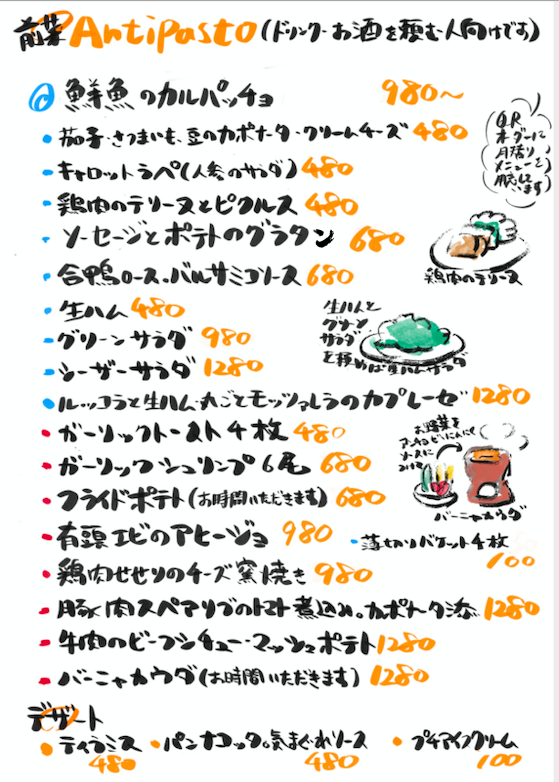 前菜 Antipasto (ドリンク・お酒を頼む人向けです)
鮮魚のカルパッチョ 980〜
茄子・さつまいも、豆のカポナータ・クリームチーズ 480
キャロットラペ(人参のサラダ) 480
鶏肉のテリーヌとピクルス 480
ソーセージとポテトのグラタン 680
合鴨ロース・バルサミコソース 680
生ハム 480
グリーンサラダ 980
シーザーサラダ 1280
ルッコラと生ハム・丸ごとモッツァレラのカプレーゼ 1280
ガーリックトースト4枚 480
ガーリックシュリンプ6尾 680
フライドポテト(お時間いただきます) 680
有頭エビのアヒージョ 980
薄切りバケット4枚
100
鶏肉せせりのチーズ窯焼き 980
豚肉スペアリブのトマト煮込み。カポナータ添 1280
牛肉のビーフシチュー・マッシュポテト 1280
バーニャカウダ(お時間いただきます) 1280
QR
オーダーに
月替り
メニューを
用意して
います
鶏肉のテリーヌ
生ハムと
グリーン
サラダ
を頼めば生ハムサラダ
お野菜を
アンチョビとにんにく
ソースに
バーニャカウダ
デザート
ティラミス
480
パンナコッタ。気まぐれソース
480
プチアイスクリーム
100